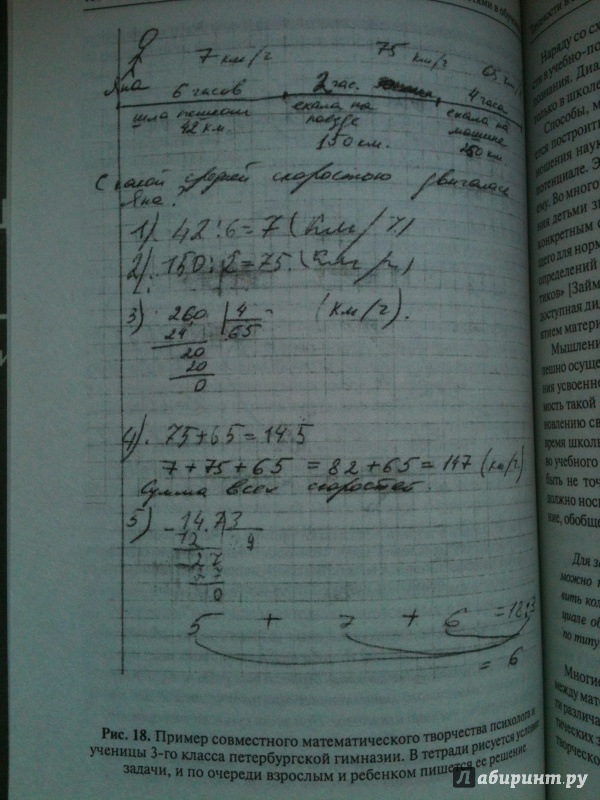 7 км/г 75 км/г 65 км/
Яна 6 часов 2 час. 4 часа
шла пешком ехала на поезде ехала на машине
42 км. 150 км. 260 км
С какой средней скоростью двигалась
Яна?
1). 42:6=7 (км/ч)
2). 150:2=75. (км/ч)
3) 260 4 (км/г).
24 65
20
20
0
4). 75+65=145
7+75+65 = 82+65=147 (км/г)
Сумма всех скоростей.
5)
0
5 + 7 + 6 =18:3
= 6
Рис. 18. Пример совместного математического творчества психолога и
ученицы 3-го класса петербургской гимназии. В тетради рисуется условие
задачи, и по очереди взрослым и ребенком пишется ее решение
Наряду со сх
ся в учебно-по
знавания. Диа
только в школе
Способы, м
ется построить
ношения наук
потенциале. Э
ому. Во много
ния детьми з
конкретным с
щего для норм
определений
тиков» [Займ
доступная ди
ятием матери
Мышлени
пешно осуще
ния усвоенно
мость такой
новлению св
время школь
во учебного
быть не точ
должно носи
ние, обобще
Для за
можно п
вить кол
циале об
по типу
Многие
между мате
ти различа
тических з
творческо
Лабиринт.ру